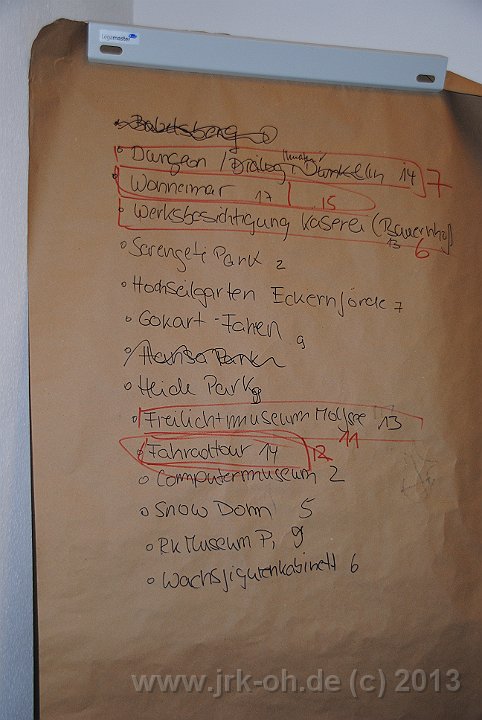 Legamaster
Babelsberg
Dungeon / Dialog im Dunkeln 14 7
Wonnemar 17 15
Werksbesichtigung Käserei (Bauernhof)
13 6
Serengeti Park 2
Hochseilgarten Eckernförde 7
Gokart-Fahren 9
Hansa Park
Heide Park 9
Freilichtmuseum Molfsee 13
11
Fahradtour 14 12
Computermuseum 2
Snow Dom 5
RK Museum P, 9
Wachsfigutenkabinett 6
www.jrk-oh.de (c) 2013